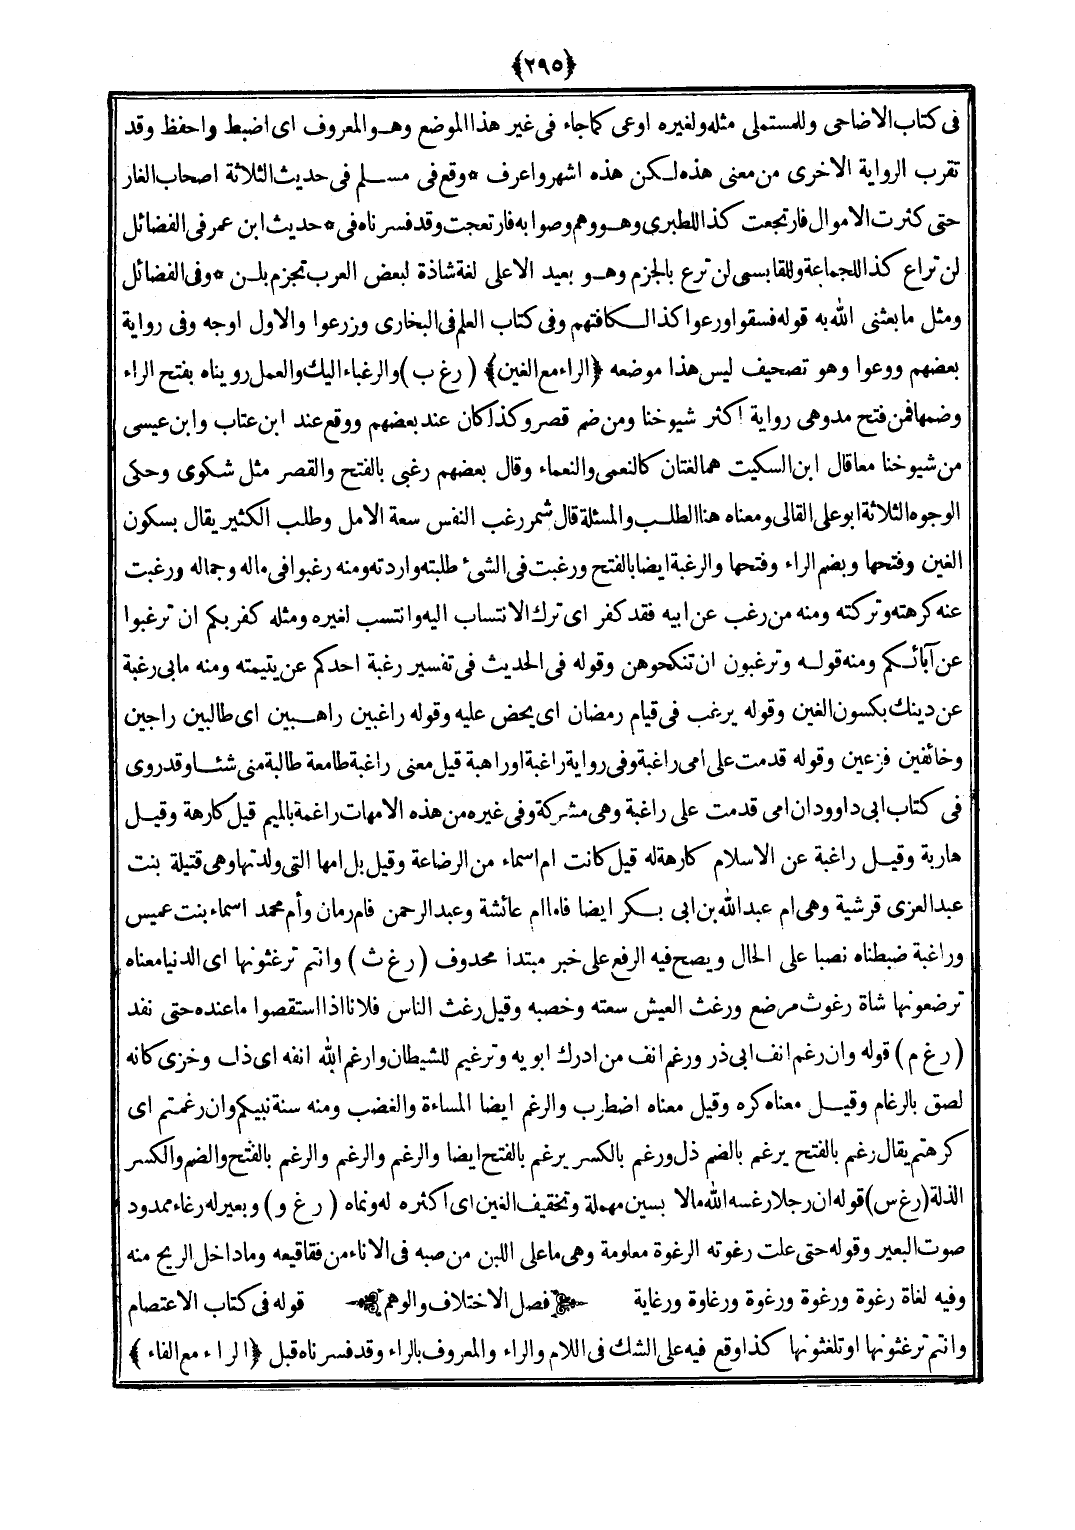 ﴿٢٩٥﴾
فى كتاب الاضاحى وللمستملى مثله ولغيره اوعى كما جاء فى غير هذا الموضع وهو المعروف اى اضبط واحفظ وقد
تقرب الرواية الاخرى من معنى هذه لكن هذه اشهر واعرف * وقع فى مسلم فى حديث الثلاثة اصحاب الغار
حتى كثرت الاموال فارتجعت كذا للطبرى وهو وهم وصوابه فارتعجت وقد فسرناه فى * حديث ابن عمر فى الفضائل
لن تراع كذا للجماعة وللقابسى لن ترع بالجزم وهو بعيد الا على لغة شاذة لبعض العرب تجزم بلن * وفى الفضائل
ومثل ما بعثنى الله به قوله فسقوا ورعوا كذا لكافتهم وفى كتاب العلم فى البخارى وزرعوا والاول اوجه وفى رواية
بعضهم ووعوا وهو تصحيف ليس هذا موضعه ﴿الراء مع الغين﴾ (رغ ب) والرغباء اليك والعمل رويناه بفتح الراء
وضمها فمن فتح مد وهى رواية اكثر شيوخنا ومن ضم قصر وكذا كان عند بعضهم ووقع عند ابن عتاب وابن عيسى
من شيوخنا معا قال ابن السكيت هما لغتان كالنعمى والنعماء وقال بعضهم رغبى بالفتح والقصر مثل شكوى وحكى
الوجوه الثلاثة ابو على القالى ومعناه هنا الطلب والمسئلة قال شمر رغب النفس سعة الامل وطلب الكثير يقال بسكون
الغين وفتحها وبضم الراء وفتحها والرغبة ايضا بالفتح ورغبت فى الشئ طلبته واردته ومنه رغبوا فى ماله وجماله ورغبت
عنه كرهته وتركته ومنه من رغب عن ابيه فقد كفر اى ترك الانتساب اليه وانتسب لغيره ومثله كفر بكم ان ترغبوا
عن آبائكم ومنه قوله وترغبون ان تنكحوهن وقوله فى الحديث فى تفسير رغبة احدكم عن يتيمته ومنه مابى رغبة
عن دينك بكسون الغين وقوله يرغب فى قيام رمضان اى يحض عليه وقوله راغبين راهبين اى طالبين راجين
وخائفين فزعين وقوله قدمت على امى راغبة وفى رواية راغبة او راهبة قيل معنى راغبة طامعة طالبة منى شئا وقد روى
فى كتاب ابى داوود ان امى قدمت على راغبة وهى مشركة وفى غيره من هذه الامهات راغمة بالميم قيل كارهة وقيل
هاربة وقيل راغبة عن الاسلام كارهة له قيل كانت ام اسماء من الرضاعة وقيل بل امها التى ولدتها وهى قتيلة بنت
عبد العزى قرشية وهى ام عبد الله بن ابى بكر ايضا فاما ام عائشة وعبد الرحمن فام رمان وأم محمد اسماء بنت عميس
وراغبة ضبطناه نصبا على الحال ويصح فيه الرفع على خبر مبتدا محدوف (رغ ث) وانتم ترغثونها اى الدنيا معناه
ترضعونها شاة رغوث مرضع ورغث العيش سعته وخصبه وقيل رغث الناس فلانا اذا استقصوا ما عنده حتى نفد
(رغ م) قوله وان رغم انف ابى ذر ورغم انف من ادرك ابويه وترغيم للشيطان وارغم الله انفه اى ذل وخزى كانه
لصق بالرغام وقيل معناه كره وقيل معناه اضطرب والرغم ايضا المساءة والغضب ومنه سنة نبيكم وان رغمتم اى
كرهتم يقال رغم بالفتح يرغم بالضم ذل ورغم بالكسر يرغم بالفتح ايضا والرغم والرغم والرغم بالفتح والضم والكسر
الذلة (رغ س) قوله ان رجلا رغسه الله مالا بسين مهملة وتخفيف الغين اى اكثره له ونماه (رغ و) وبعير له رغاء ممدود
صوت البعير وقوله حتى علت رغوته الرغوة معلومة وهى ما على اللبن من صبه فى الاناء من فقاقيعه وماداخل الريح منه
وفيه لغاة رغوة ورغوة ورغوة ورغاوة ورغاية ﴿فصل الاختلاف والوهم﴾ قوله فى كتاب الاعتصام
وانتم ترغثونها او تلغثونها كذا وقع فيه على الشك فى اللام والراء والمعروف بالراء وقد فسرناه قبل ﴿الراء مع الفاء﴾